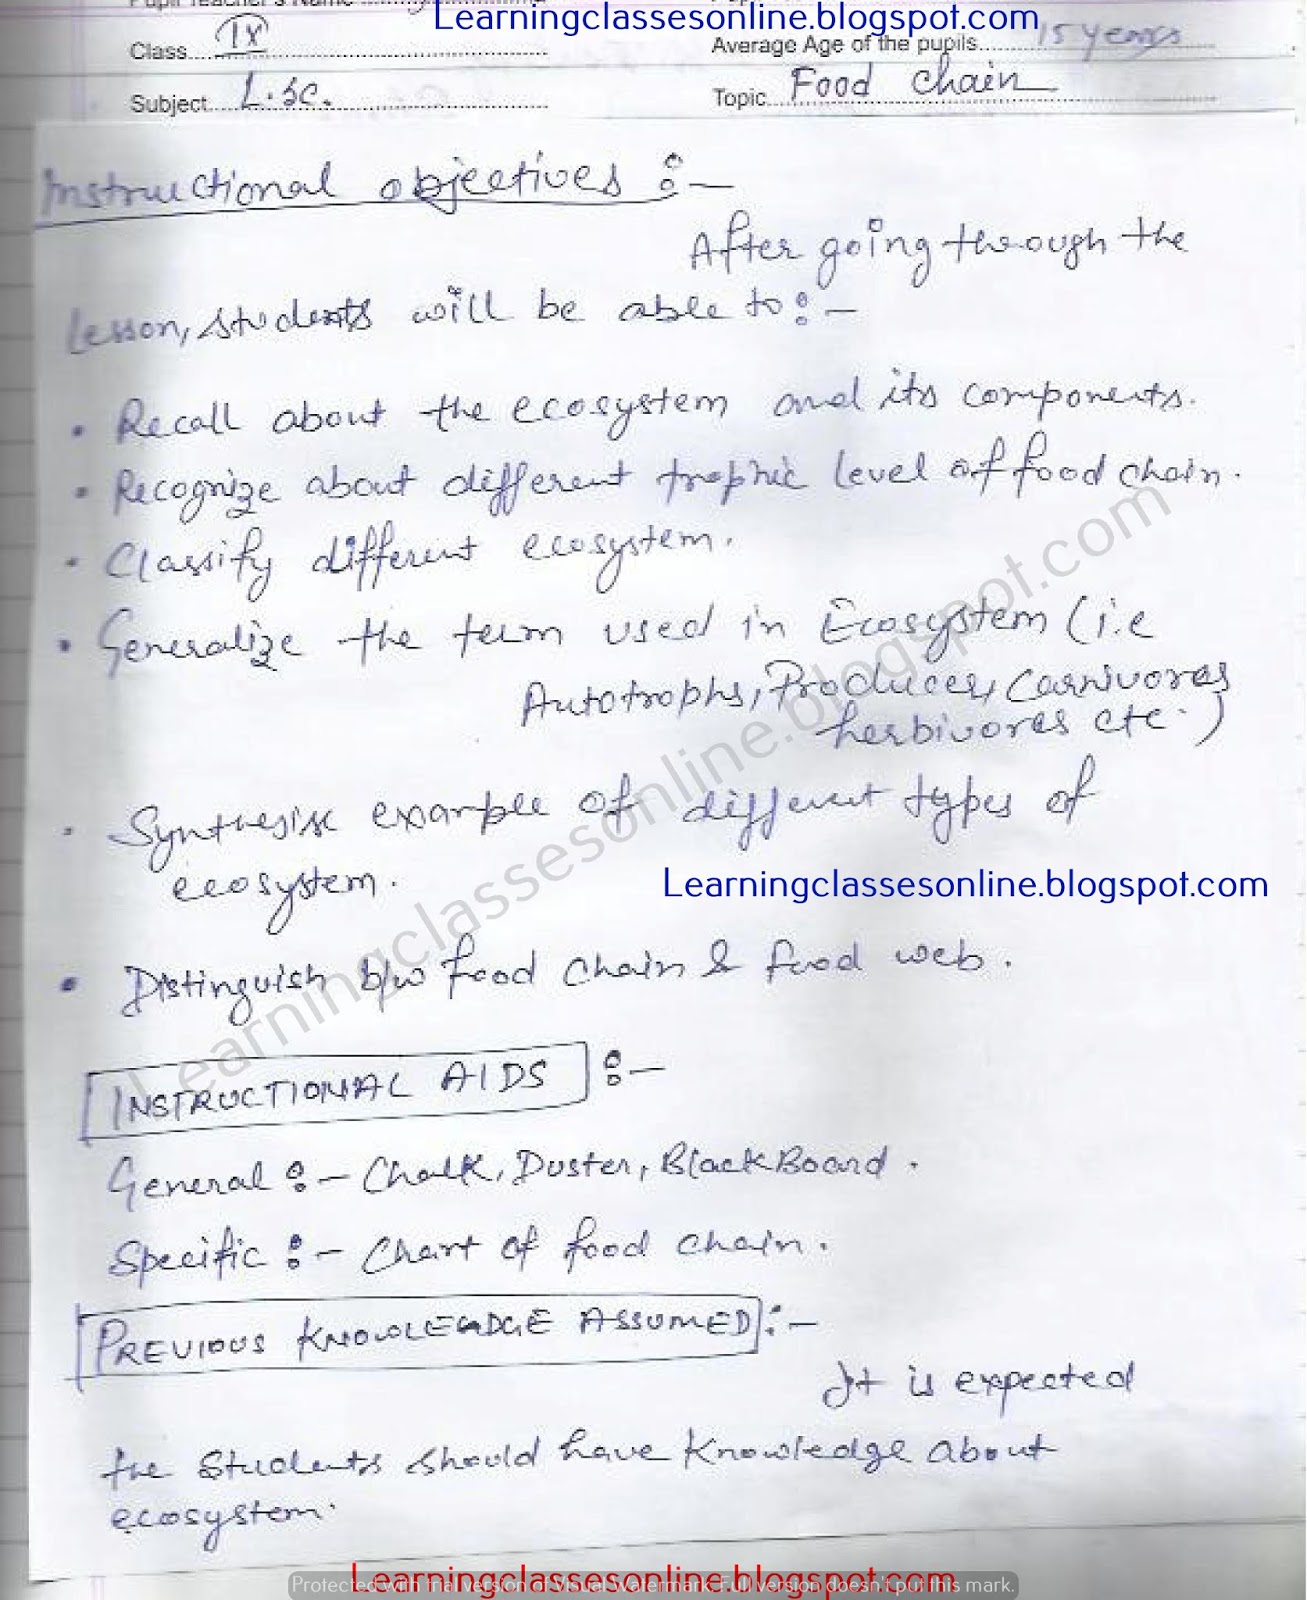 Pupil Teacher's Name
Learningclassesonline.blogspot.com
Class IX
Average Age of the pupils 15 years
Subject L.Sc.
Topic Food Chain
Instructional objectives :-
After going through the
Lesson, students will be able to :-
• Recall about the ecosystem and its components.
• Recognize about different trophic level of food chain.
• Classify different ecosystem.
• Generalize the term used in Ecosystem (i.e
Autotrophs, Producer, Carnivores
herbivores etc.)
• Synthesise example of different types of
ecosystem.
Learningclassesonline.blogspot.com
• Distinguish b/w food chain & food web.
INSTRUCTIONAL AIDS :-
General :- Chalk, Duster, BlackBoard.
Specific :- Chart of food chain.
PREVIOUS KNOWLEADGE ASSUMED :-
It is expected
the students should have knowledge about
ecosystem.
Learningclassesonline.blogspot.com
Learningclassesonline.blogspot.com
Protected with trial version of Visual Watermark. Full version doesn't put this mark.